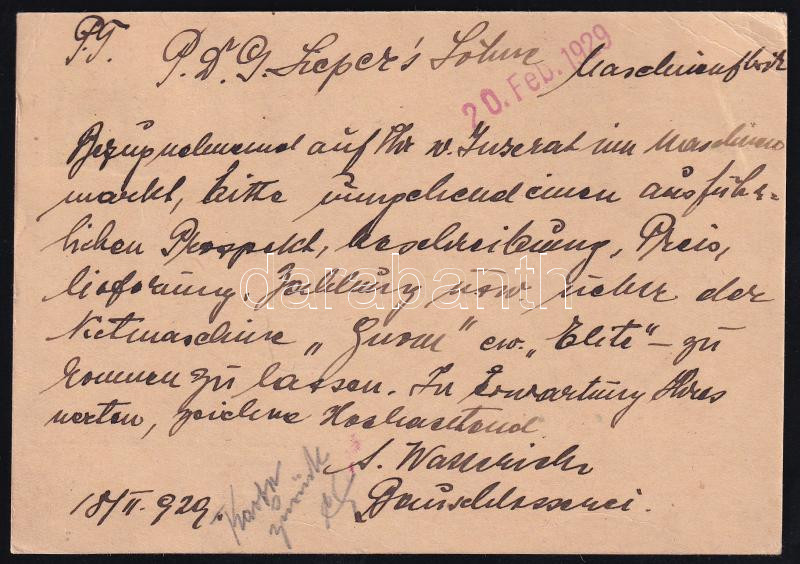 P.T.
P. D. G. Lieper's Söhne Maschinenfbrik
20. Feb. 1929
Bezugnehmend auf Ihr w. Inserat im Maschinen
markt, bitte umgehend einen ausführ-
lichen Prospekt, beschreibung, Preis,
lieferung, Zahlung usw. ueber der
Nietmaschine „ " ev. „Elite" – zu
kommen zu lassen. In Erwartung Ihres
werten, zeichne Hochachtend
A.
Bauschlosserei.
18/II. 929.
Karte
zurück
darabanth